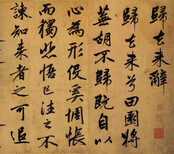 歸去來辭
歸去來兮田園將
蕪胡不歸既自以
心為形役奚惆悵
而獨悲悟已往之不
諫知來者之可追